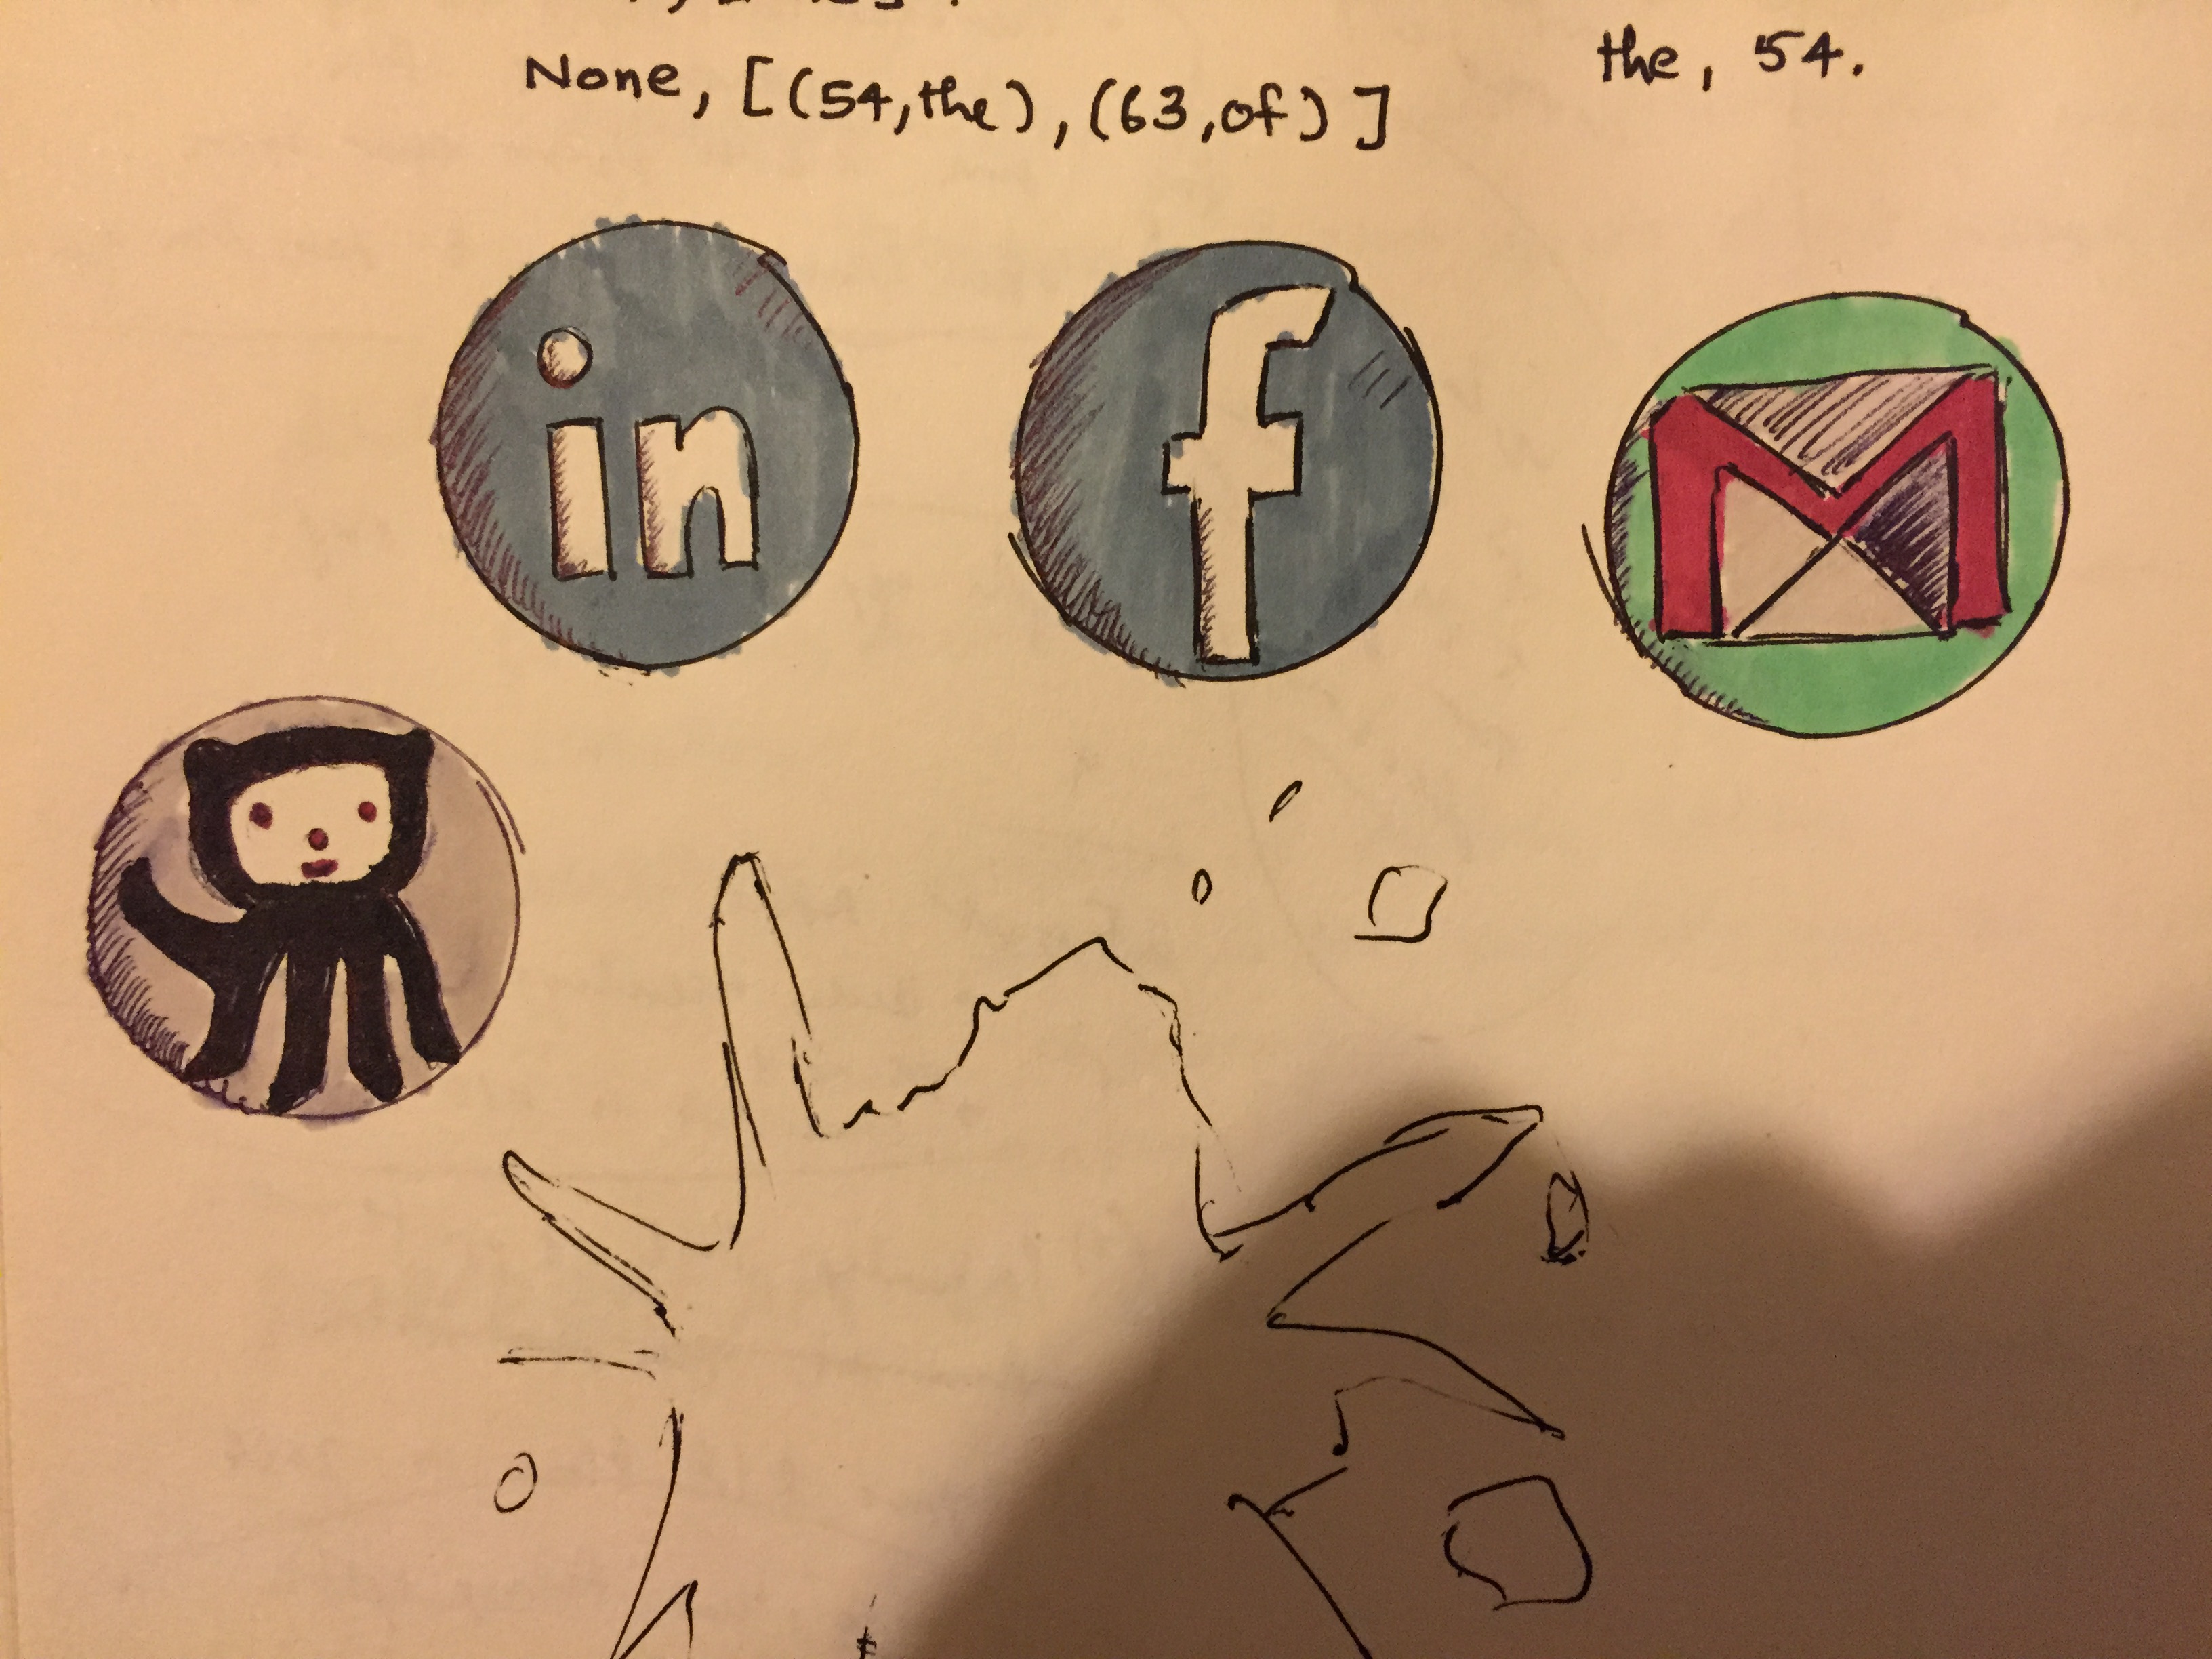 None, [(54,the), (63,of)]
the, 54.
in
f
M